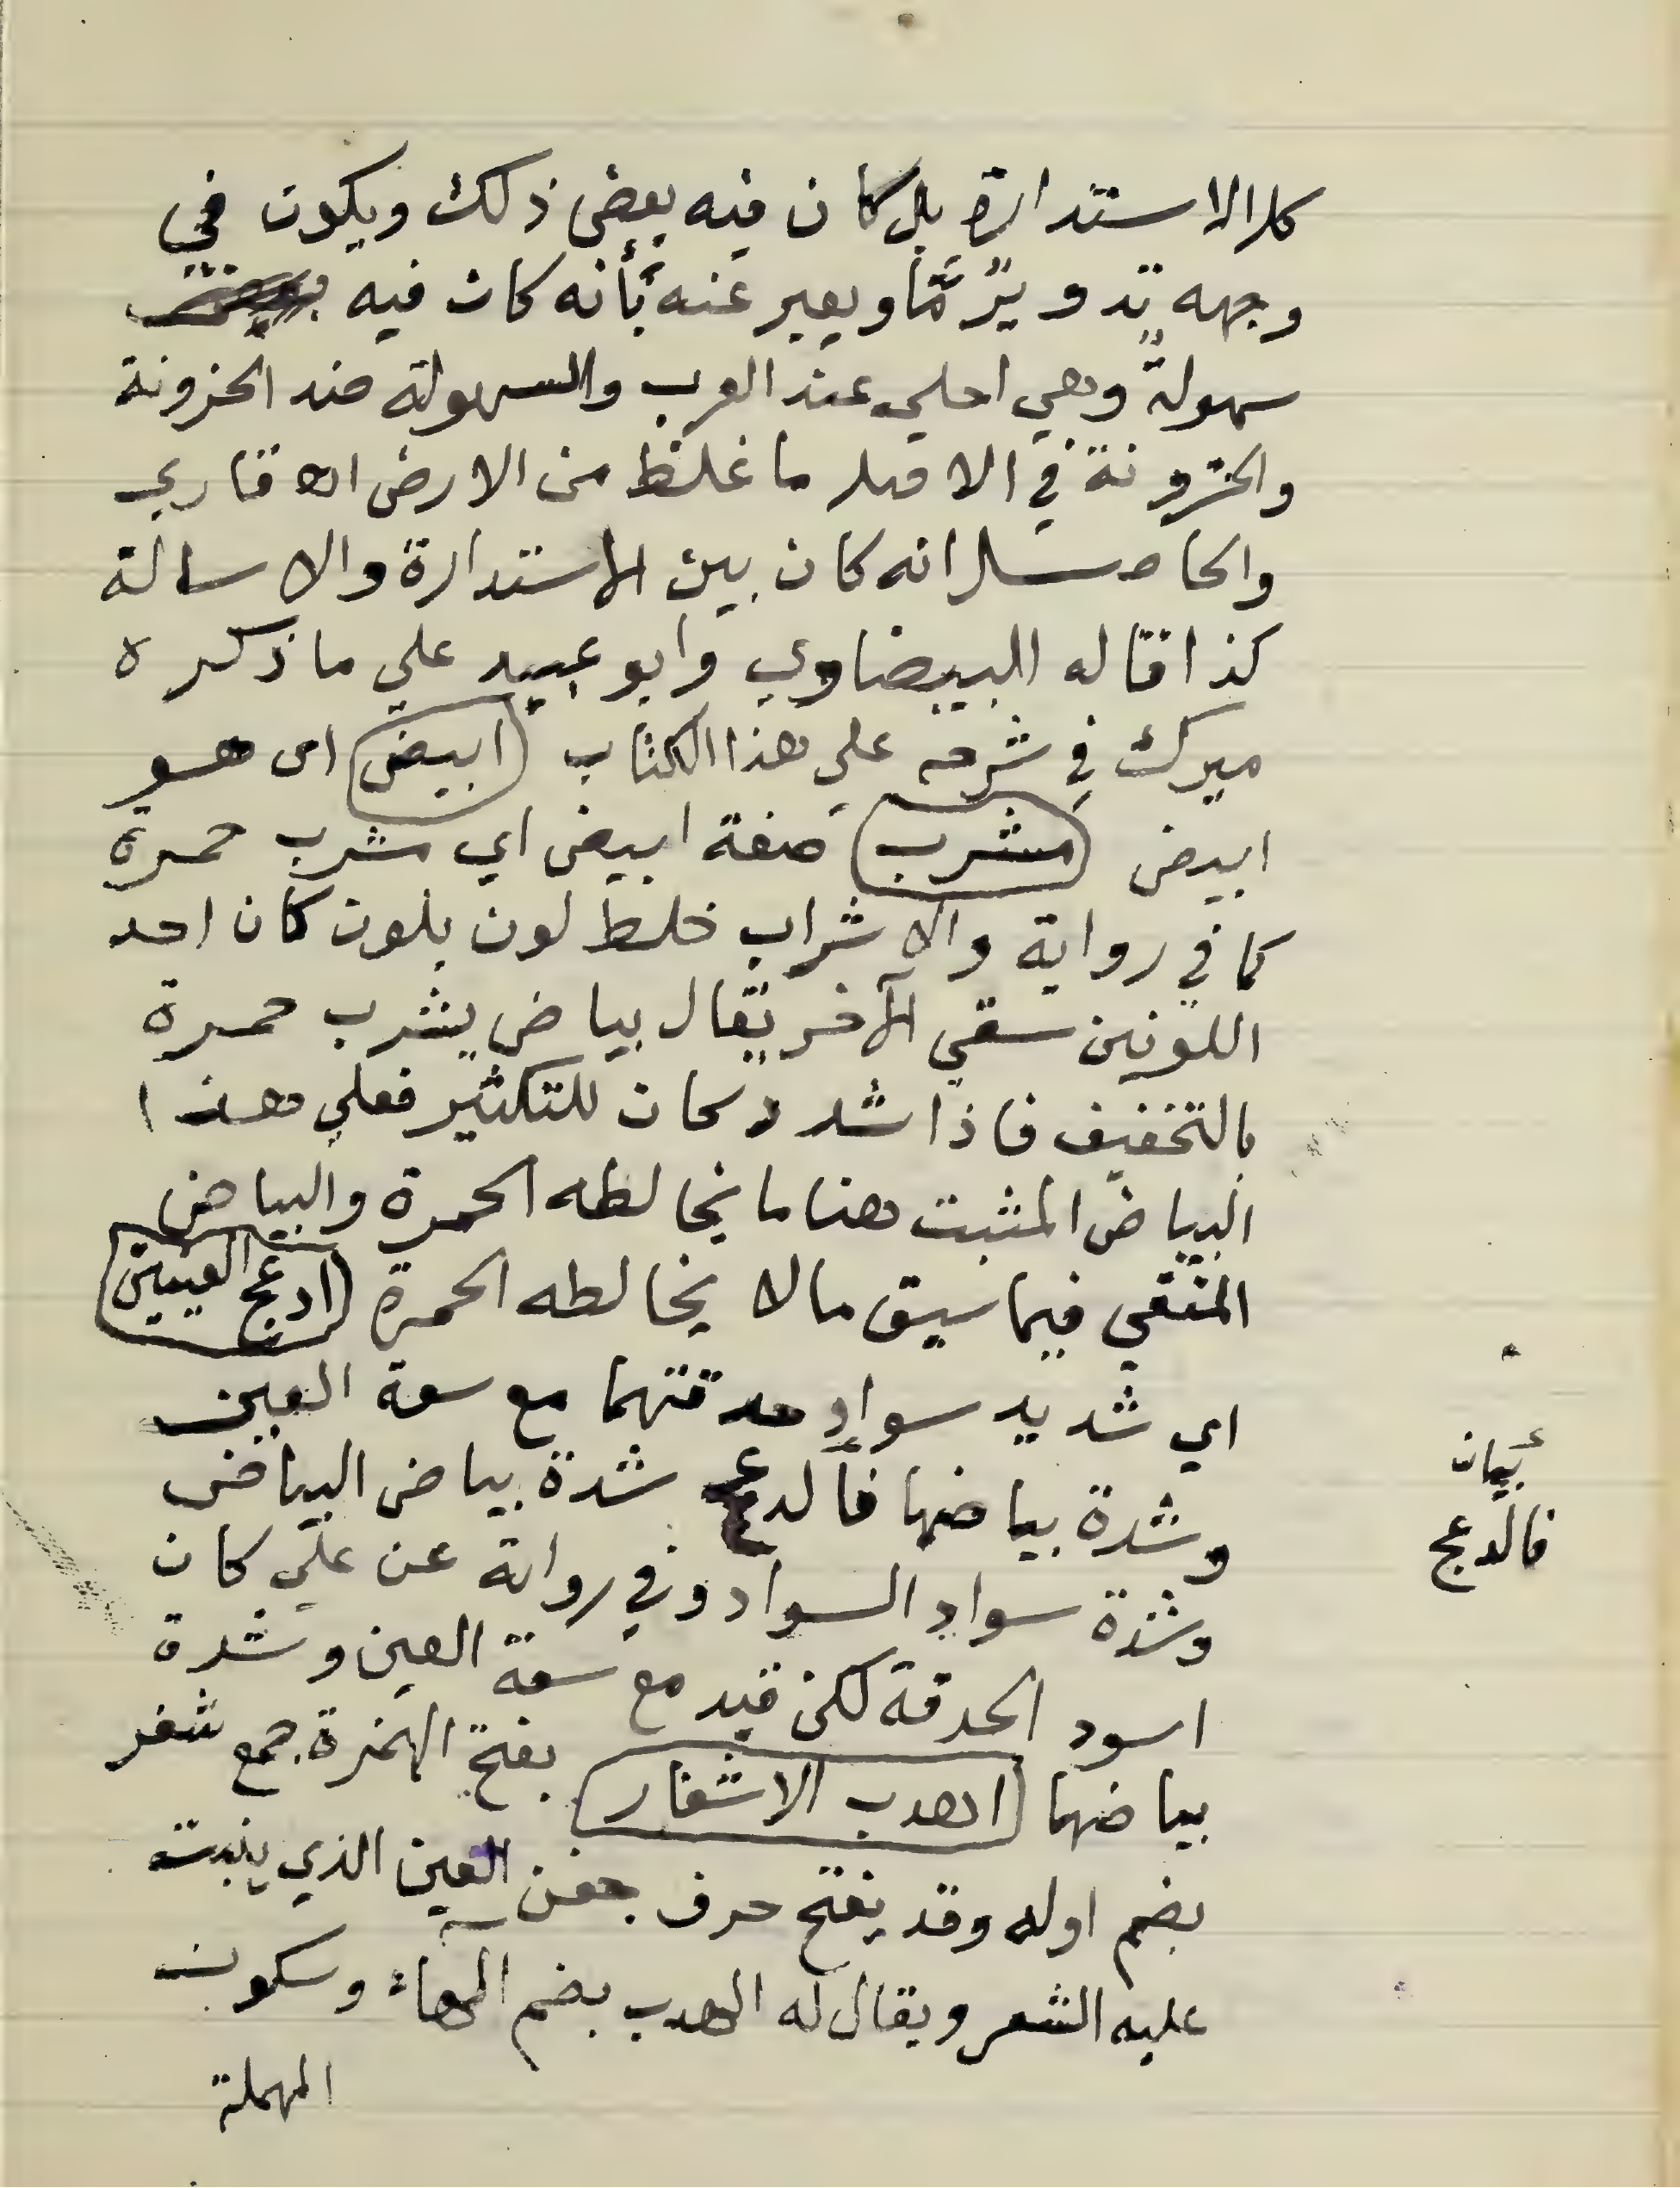 كل الاستدارة بل كان فيه بعض ذلك ويكون في
وجهه تدوير مّا ويعبر عنه بأنه كان فيه
سهولة وهي احلي عند العرب والسهولة ضد الحزونة
والحزونة في الاصل ما غلظ من الارض اﻫ قاري
والحاصل انه كان بين الاستدارة والاسالة
كذا قاله البيضاوي وابو عبيد علي ما ذكره
ميرك في شرحه علي هذا الكتاب (ابيض) اي هو
ابيض (مشرب) صفة ابيض اي مشرب حمرة
كما في رواية والاشراب خلط لون بلون كان احد
اللونين سقي الآخر يقال بياض يشرب حمرة
بالتخفيف فاذا شدد كان للتكثير فعلي هذا
البياض المثبت هنا ما يخالطه الحمرة والبياض
المنفي فيما سبق ما لا يخالطه الحمرة (ادعج العينين)
اي شديد سواد حدقتهما مع سعة العين
وشدة بياضها فالدعج شدة بياض البياض
وشدة سواد السواد وفي رواية عن علي كان
اسود الحدقة لكن قيد مع سعة العين وشدة
بياضهما (اهدب الاشفار) بفتح الهمزة جمع شفر
بضم اوله وقد يفتح حرف جفن العين الذي ينبت
عليه الشعر ويقال له الهدب بضم الهاء وسكون
المهملة
بيان
فالدعج